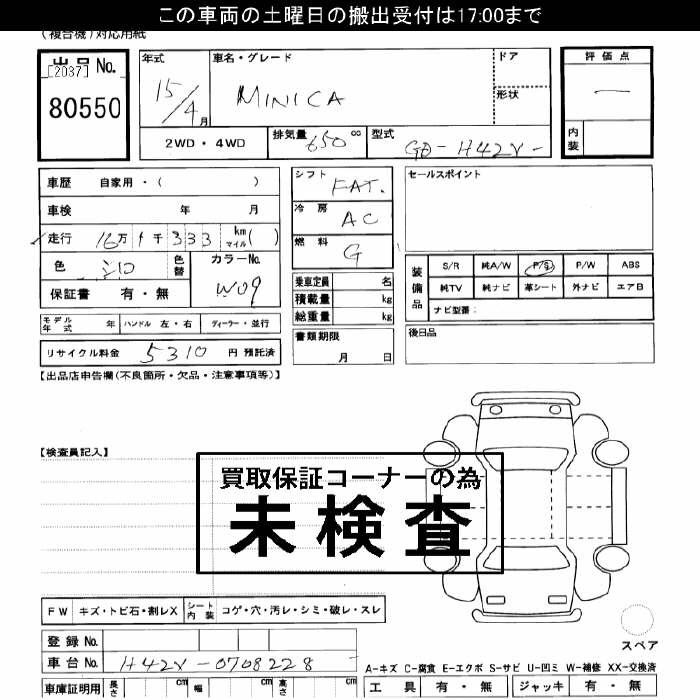 この車両の土曜日の搬出受付は17:00まで
(複合機)対応用紙
出品 No.
[2037]
80550
年式 15/4月
車名・グレード MINICA
ドア
形状
評価点 —
内装
2WD・4WD
排気量 650 cc
型式 GD-H42V-
車歴 自家用・( )
車検 年 月
走行 16万1千333 km マイル( )
色 シロ 色替
カラーNo. W09
保証書 有・無
シフト FAT.
冷房 AC
燃料 G
乗車定員 名
積載量 kg
総重量 kg
書類期限 月 日
セールスポイント
装備品
S/R 純A/W P/S P/W ABS
純TV 純ナビ 革シート 外ナビ エアB
ナビ型番:
後日品
モデル年式 年 ハンドル 左・右 ディーラー・並行
リサイクル料金 5310 円 預託済
【出品店申告欄(不良箇所・欠品・注意事項等)】
【検査員記入】
買取保証コーナーの為
未検査
FW キズ・トビ石・割レX シート内装 コゲ・穴・汚レ・シミ・破レ・スレ
登録 No.
車台 No. H42V-0708228
車庫証明用 長さ cm 幅 cm 高さ cm
スペア
A-キズ C-腐食 E-エクボ S-サビ U-凹ミ W-補修 XX-交換済
工具 有・無 ジャッキ 有・無